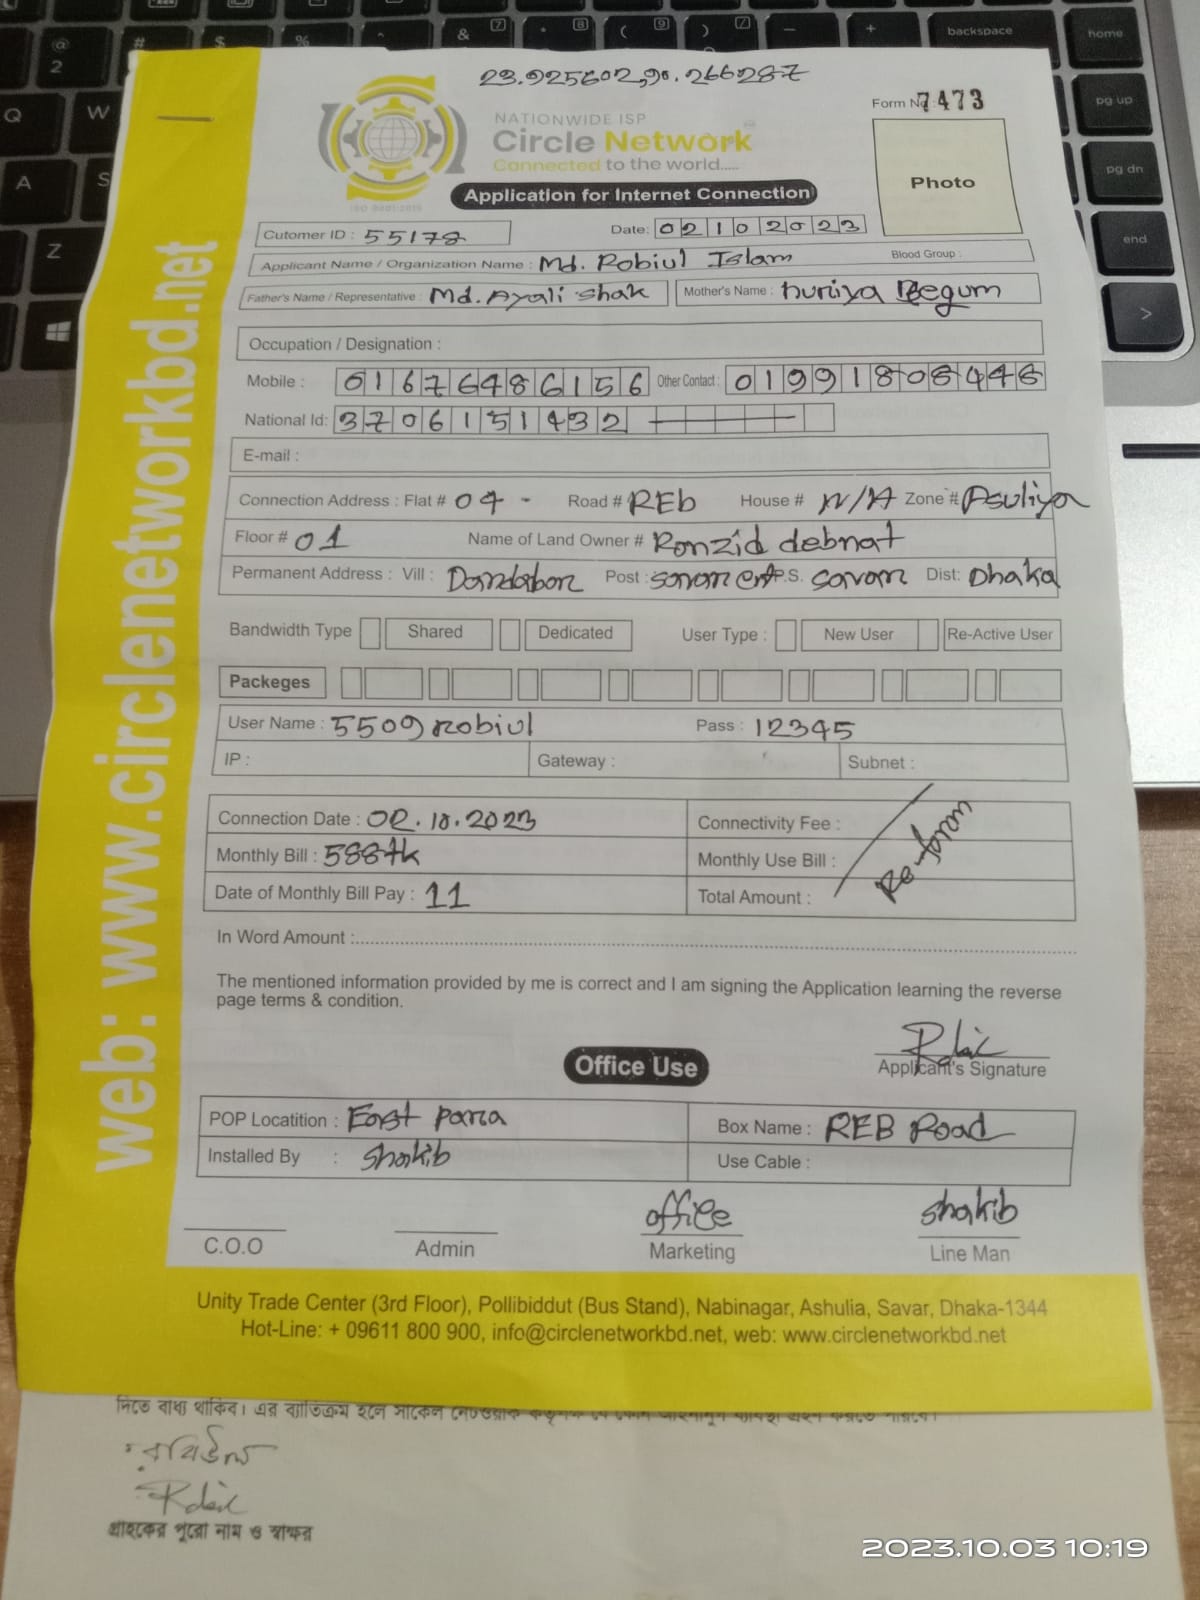 23.925602,90.266287
Form No 7473
NATIONWIDE ISP
Circle Network
Connected to the world.....
ISO 9001:2015
Photo
Application for Internet Connection
Cutomer ID : 55178
Date: 02102023
Applicant Name / Organization Name : Md. Robiul Islam Blood Group :
Father's Name / Representative : Md. Ayali shak Mother's Name : huriya Begum
Occupation / Designation :
Mobile : 01676486156 Other Contact : 01991808448
National Id: 3706151432
E-mail :
Connection Address : Flat # 04 - Road # REb House # N/A Zone # Asuliya
Floor # 01 Name of Land Owner # Ronzid debnat
Permanent Address : Vill : Dandabor Post : P.S. savar Dist: Dhaka
Bandwidth Type Shared Dedicated User Type : New User Re-Active User
Packeges
User Name : 5509robiul Pass : 12345
IP : Gateway : Subnet :
Connection Date : 02.10.2023 Connectivity Fee :
Monthly Bill : 588tk Monthly Use Bill :
Re-form
Date of Monthly Bill Pay : 11 Total Amount :
In Word Amount :
The mentioned information provided by me is correct and I am signing the Application learning the reverse
page terms & condition.
Applicant's Signature
Office Use
POP Locatition : East para Box Name : REB Road
Installed By : Shakib Use Cable :
office shakib
C.O.O Admin Marketing Line Man
Unity Trade Center (3rd Floor), Pollibiddut (Bus Stand), Nabinagar, Ashulia, Savar, Dhaka-1344
Hot-Line: + 09611 800 900, info@circlenetworkbd.net, web: www.circlenetworkbd.net
web: www.circlenetworkbd.net
দিতে বাধ্য থাকিব। এর ব্যতিক্রম হলে সার্কেল নেটওয়ার্ক
রবিউল
গ্রাহকের পুরো নাম ও স্বাক্ষর
2023.10.03 10:19